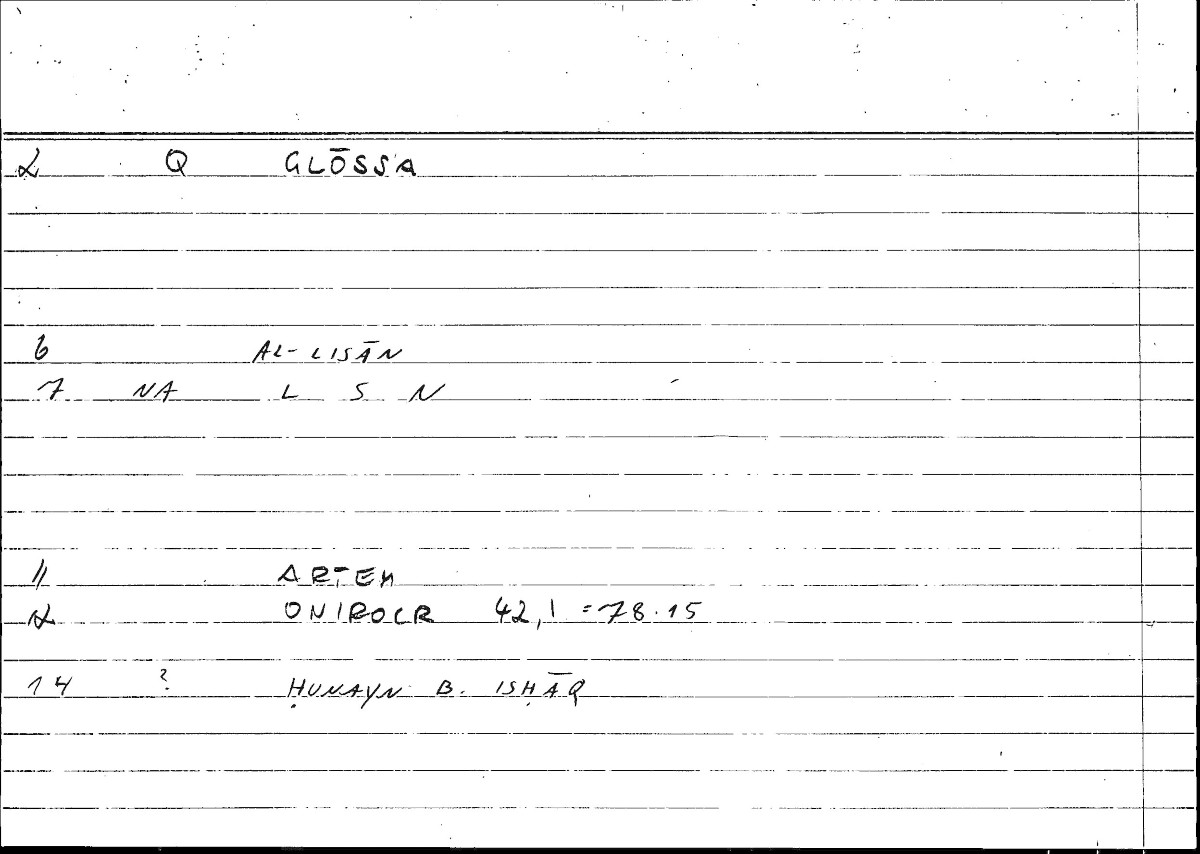 2 Q GLŌSSA
6 AL-LISĀN
7 NA L S N
11 ARTEM
12 ONIROCR 42,1 = 78.15
14 ? ḤUNAYN B. ISḤĀQ